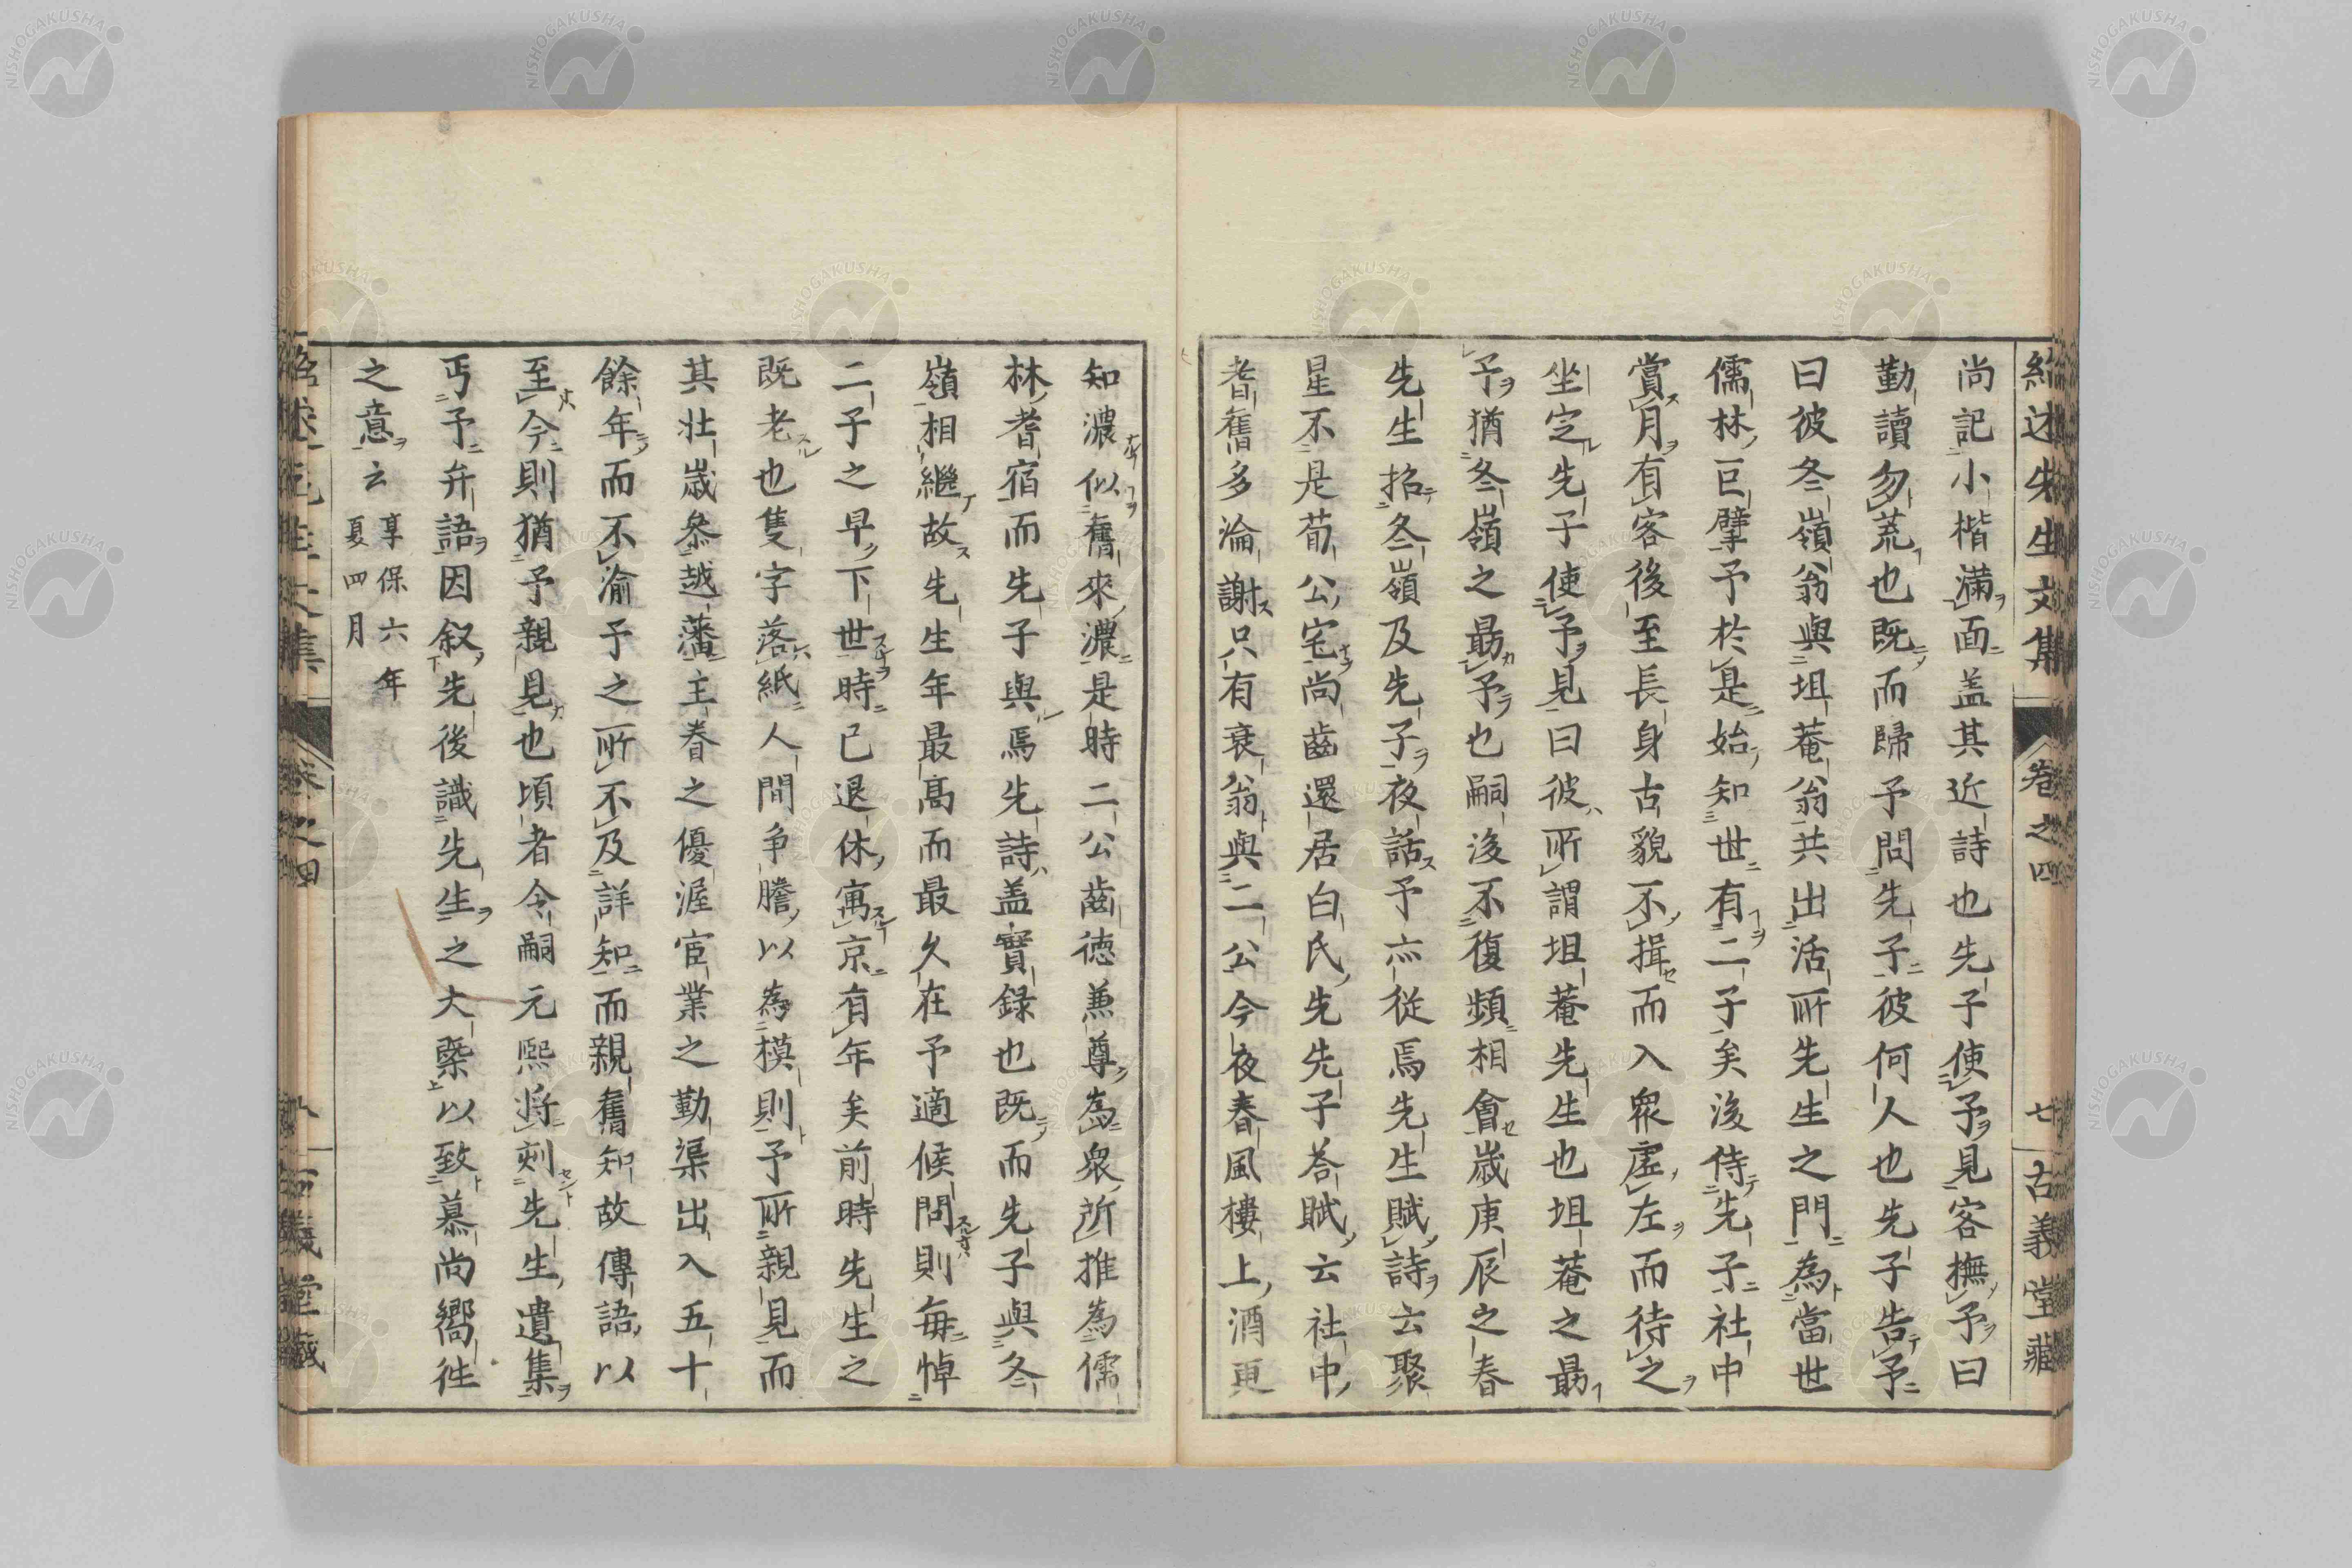 紹述先生文集 卷之四 七 古義堂藏
尚記小楷滿面盖其近詩也先子使予見客撫予曰
勤讀勿荒也既而歸予問先子彼何人也先子告予
曰彼冬嶺翁與坦菴翁共出活所先生之門為當世
儒林巨擘予於是始知世有二子矣後侍先子社中
賞月有客後至長身古貌不揖而入衆虛左而待之
坐定先子使予見曰彼所謂坦菴先生也坦菴之最
予猶冬嶺之最予也嗣後不復頻相會歲庚辰之春
先生招冬嶺及先子夜話予亦從焉先生賦詩云聚
星不是荀公宅尚齒還居白氏先先子荅賦云社中
耆舊多淪謝只有衰翁與二公今夜春風樓上酒更
知濃似舊來濃是時二公齒德兼尊為衆所推為儒
林耆宿而先子與焉先詩盖實録也既而先子與冬
嶺相繼故先生年最髙而最久在予適候問則每悼
二子之早下世時已退休寓京有年矣前時先生之
既老也隻字落紙人間争謄以為模則予所親見而
其壯歲叅越藩主眷之優渥宦業之勤渠出入五十
餘年而不渝予之所不及詳知而親舊知故傳語以
至今則猶予親見也頃者令嗣元熙將刻先生遺集
丐予弁語因叙先後識先生之大槩以致慕尚嚮徃
之意云 享保六年
夏四月
紹述先生文集 卷之四 八 古義堂藏